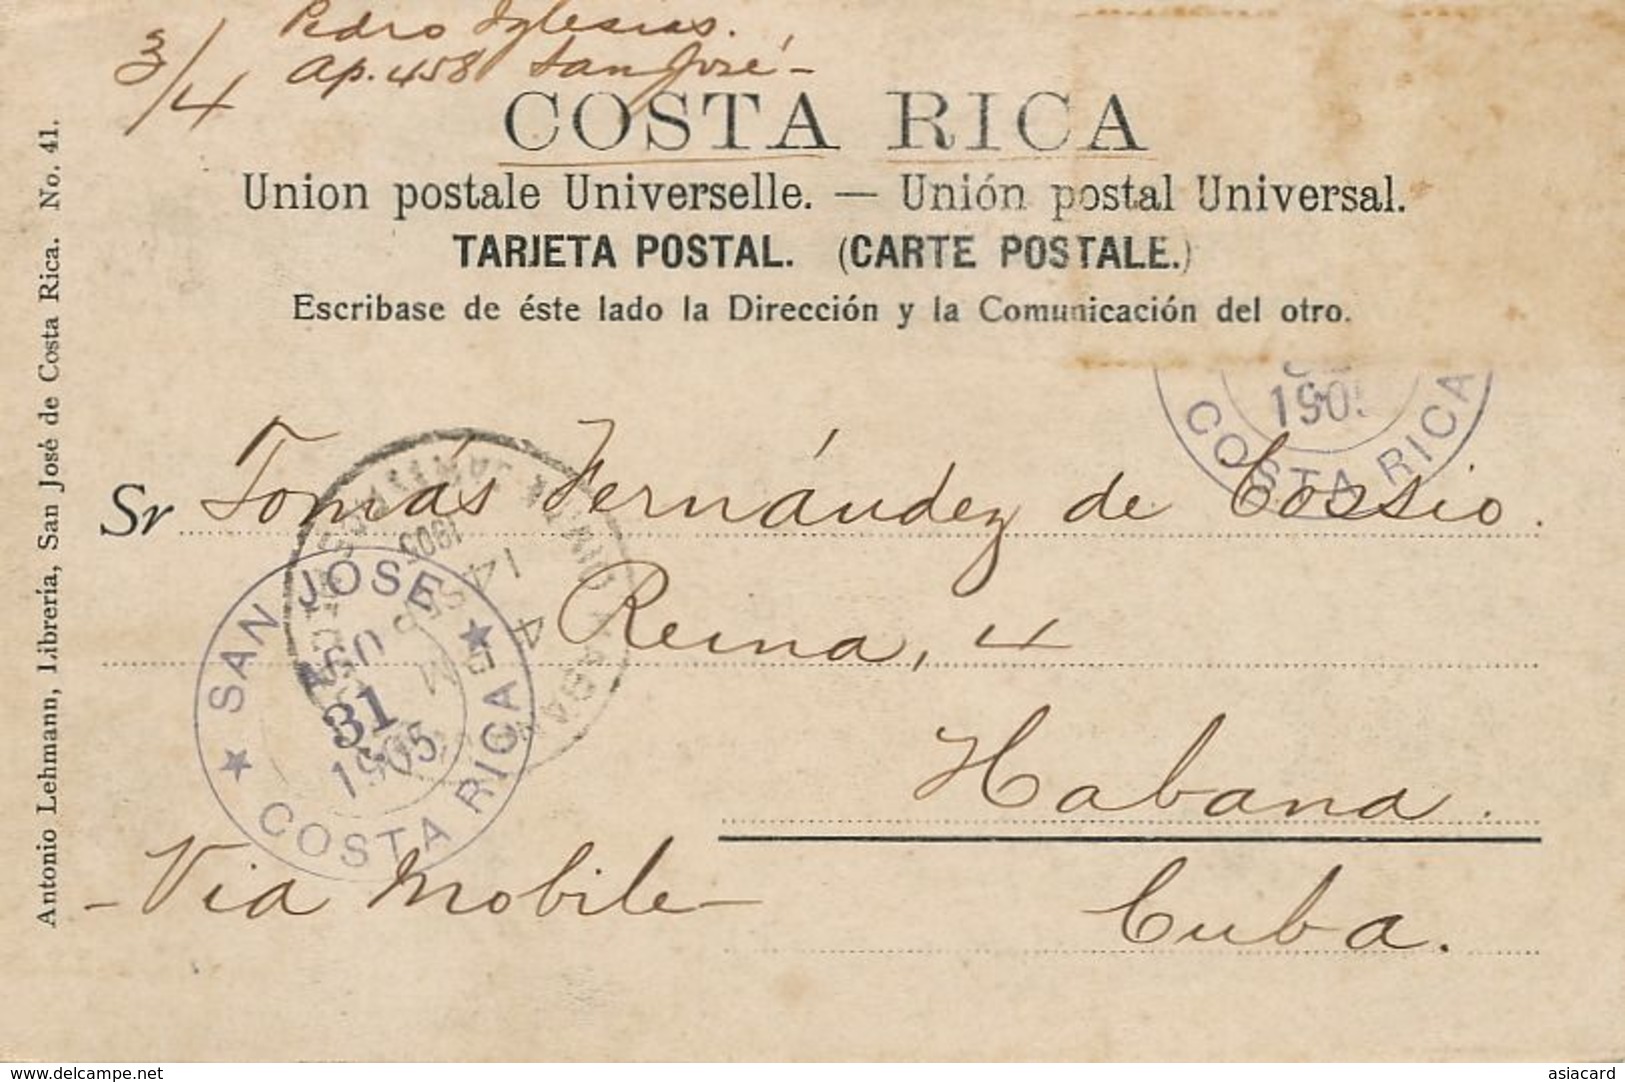 Pedro Iglesias.
3/4 Ap. 458 San José -
COSTA RICA
Union postale Universelle. — Unión postal Universal.
TARJETA POSTAL. (CARTE POSTALE.)
Escribase de éste lado la Dirección y la Comunicación del otro.
Antonio Lehmann, Librería, San José de Costa Rica. No. 41.
1905
COSTA RICA
Sr Tomás Fernández de Cossio.
Reina, 4
Habana.
Cuba.
- Via Mobile -
SAN JOSE
AGO
31
1905
COSTA RICA
14
SEP
4
M
1905
www.delcampe.net
asiacard